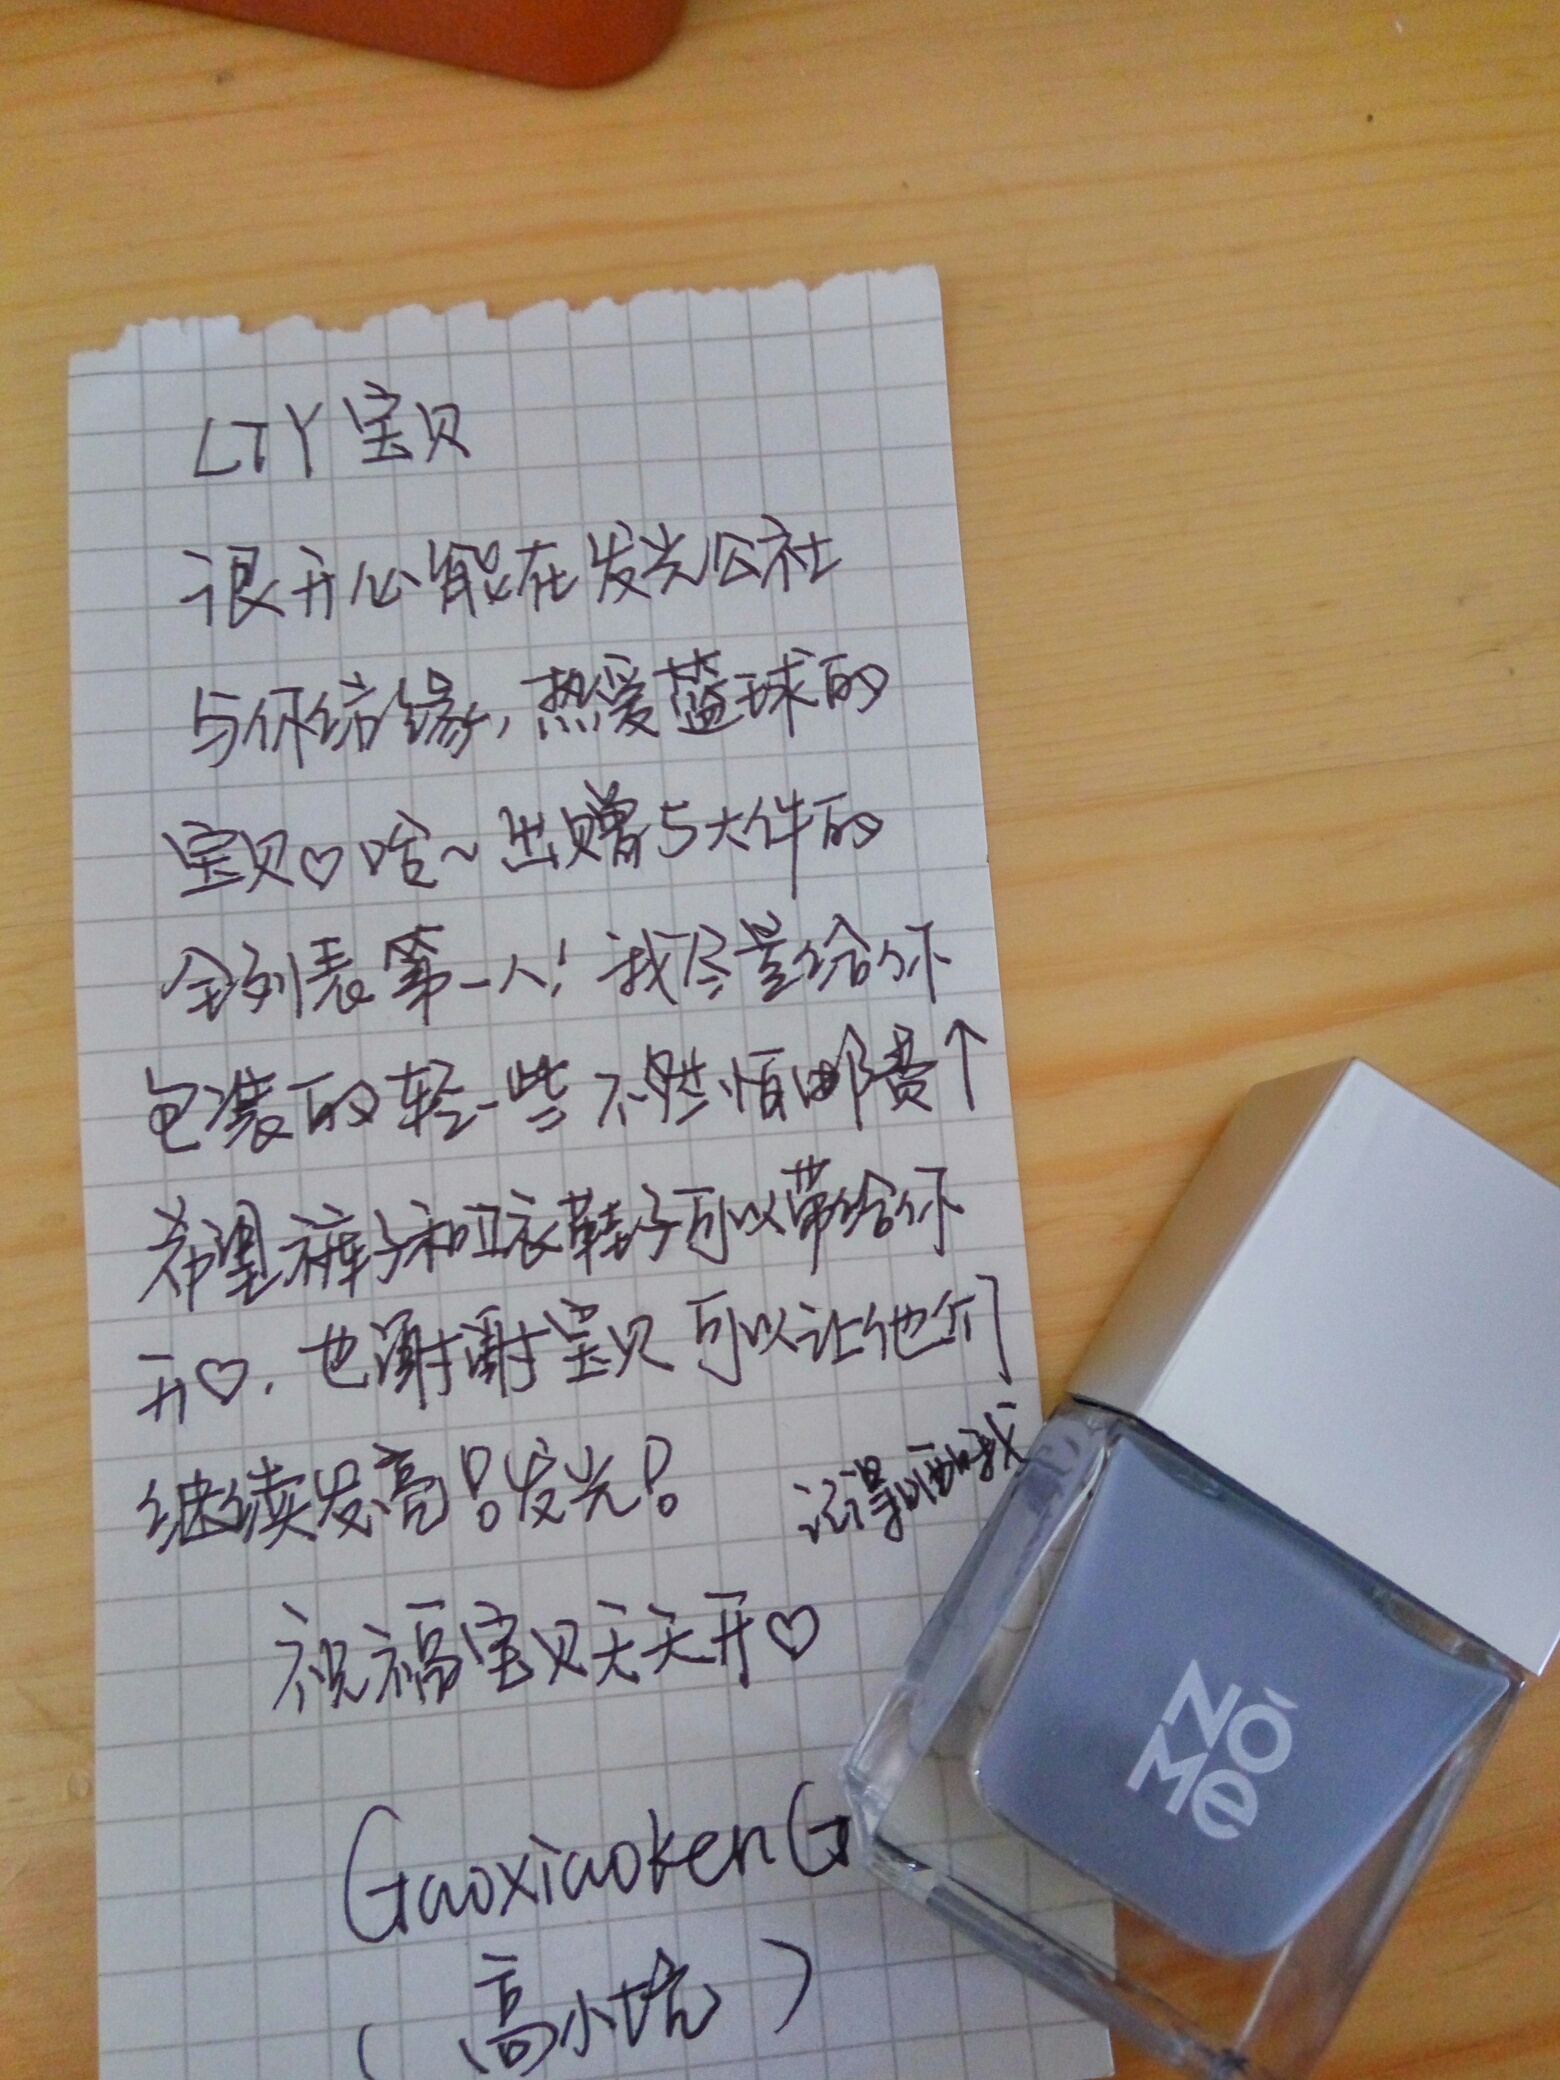 LTY宝贝
很开心能在发光公社
与你结缘，热爱篮球的
宝贝♡哈~出赠5大件的
全列表第一人！我尽量给你
包装的轻一些不然怕邮费↑
希望裤子和卫衣鞋子可以带给你
开♡.也谢谢宝贝可以让他们
继续发亮！发光！
记得晒我
祝福宝贝天天开♡
GaoxiaokenG
（高小坑）
NōMe